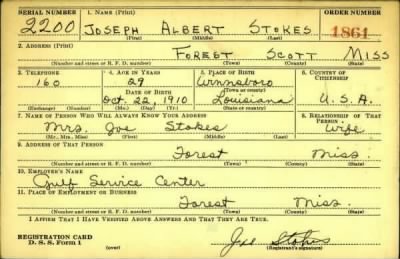 SERIAL NUMBER 1. NAME (Print) ORDER NUMBER
2200 JOSEPH ALBERT STOKES 1861
(First) (Middle) (Last)
2. ADDRESS (Print)
FOREST SCOTT MISS
(Number and street or R. F. D. number) (Town) (County) (State)
3. TELEPHONE 4. AGE IN YEARS 5. PLACE OF BIRTH 6. COUNTRY OF CITIZENSHIP
160 29 Winnsboro
DATE OF BIRTH (Town or county)
Oct. 22, 1910 Louisiana U.S.A.
(Exchange) (Number) (Mo.) (Day) (Yr.) (State or country)
7. NAME OF PERSON WHO WILL ALWAYS KNOW YOUR ADDRESS 8. RELATIONSHIP OF THAT PERSON
Mrs. Joe Stokes Wife
(Mr., Mrs., Miss) (First) (Middle) (Last)
9. ADDRESS OF THAT PERSON
Forest Miss.
(Number and street or R. F. D. number) (Town) (County) (State)
10. EMPLOYER'S NAME
Gulf Service Center
11. PLACE OF EMPLOYMENT OR BUSINESS
Forest Miss.
(Number and street or R. F. D. number) (Town) (County) (State)
I AFFIRM THAT I HAVE VERIFIED ABOVE ANSWERS AND THAT THEY ARE TRUE.
REGISTRATION CARD
D. S. S. Form 1 (over) Joe Stokes
(Registrant's signature)